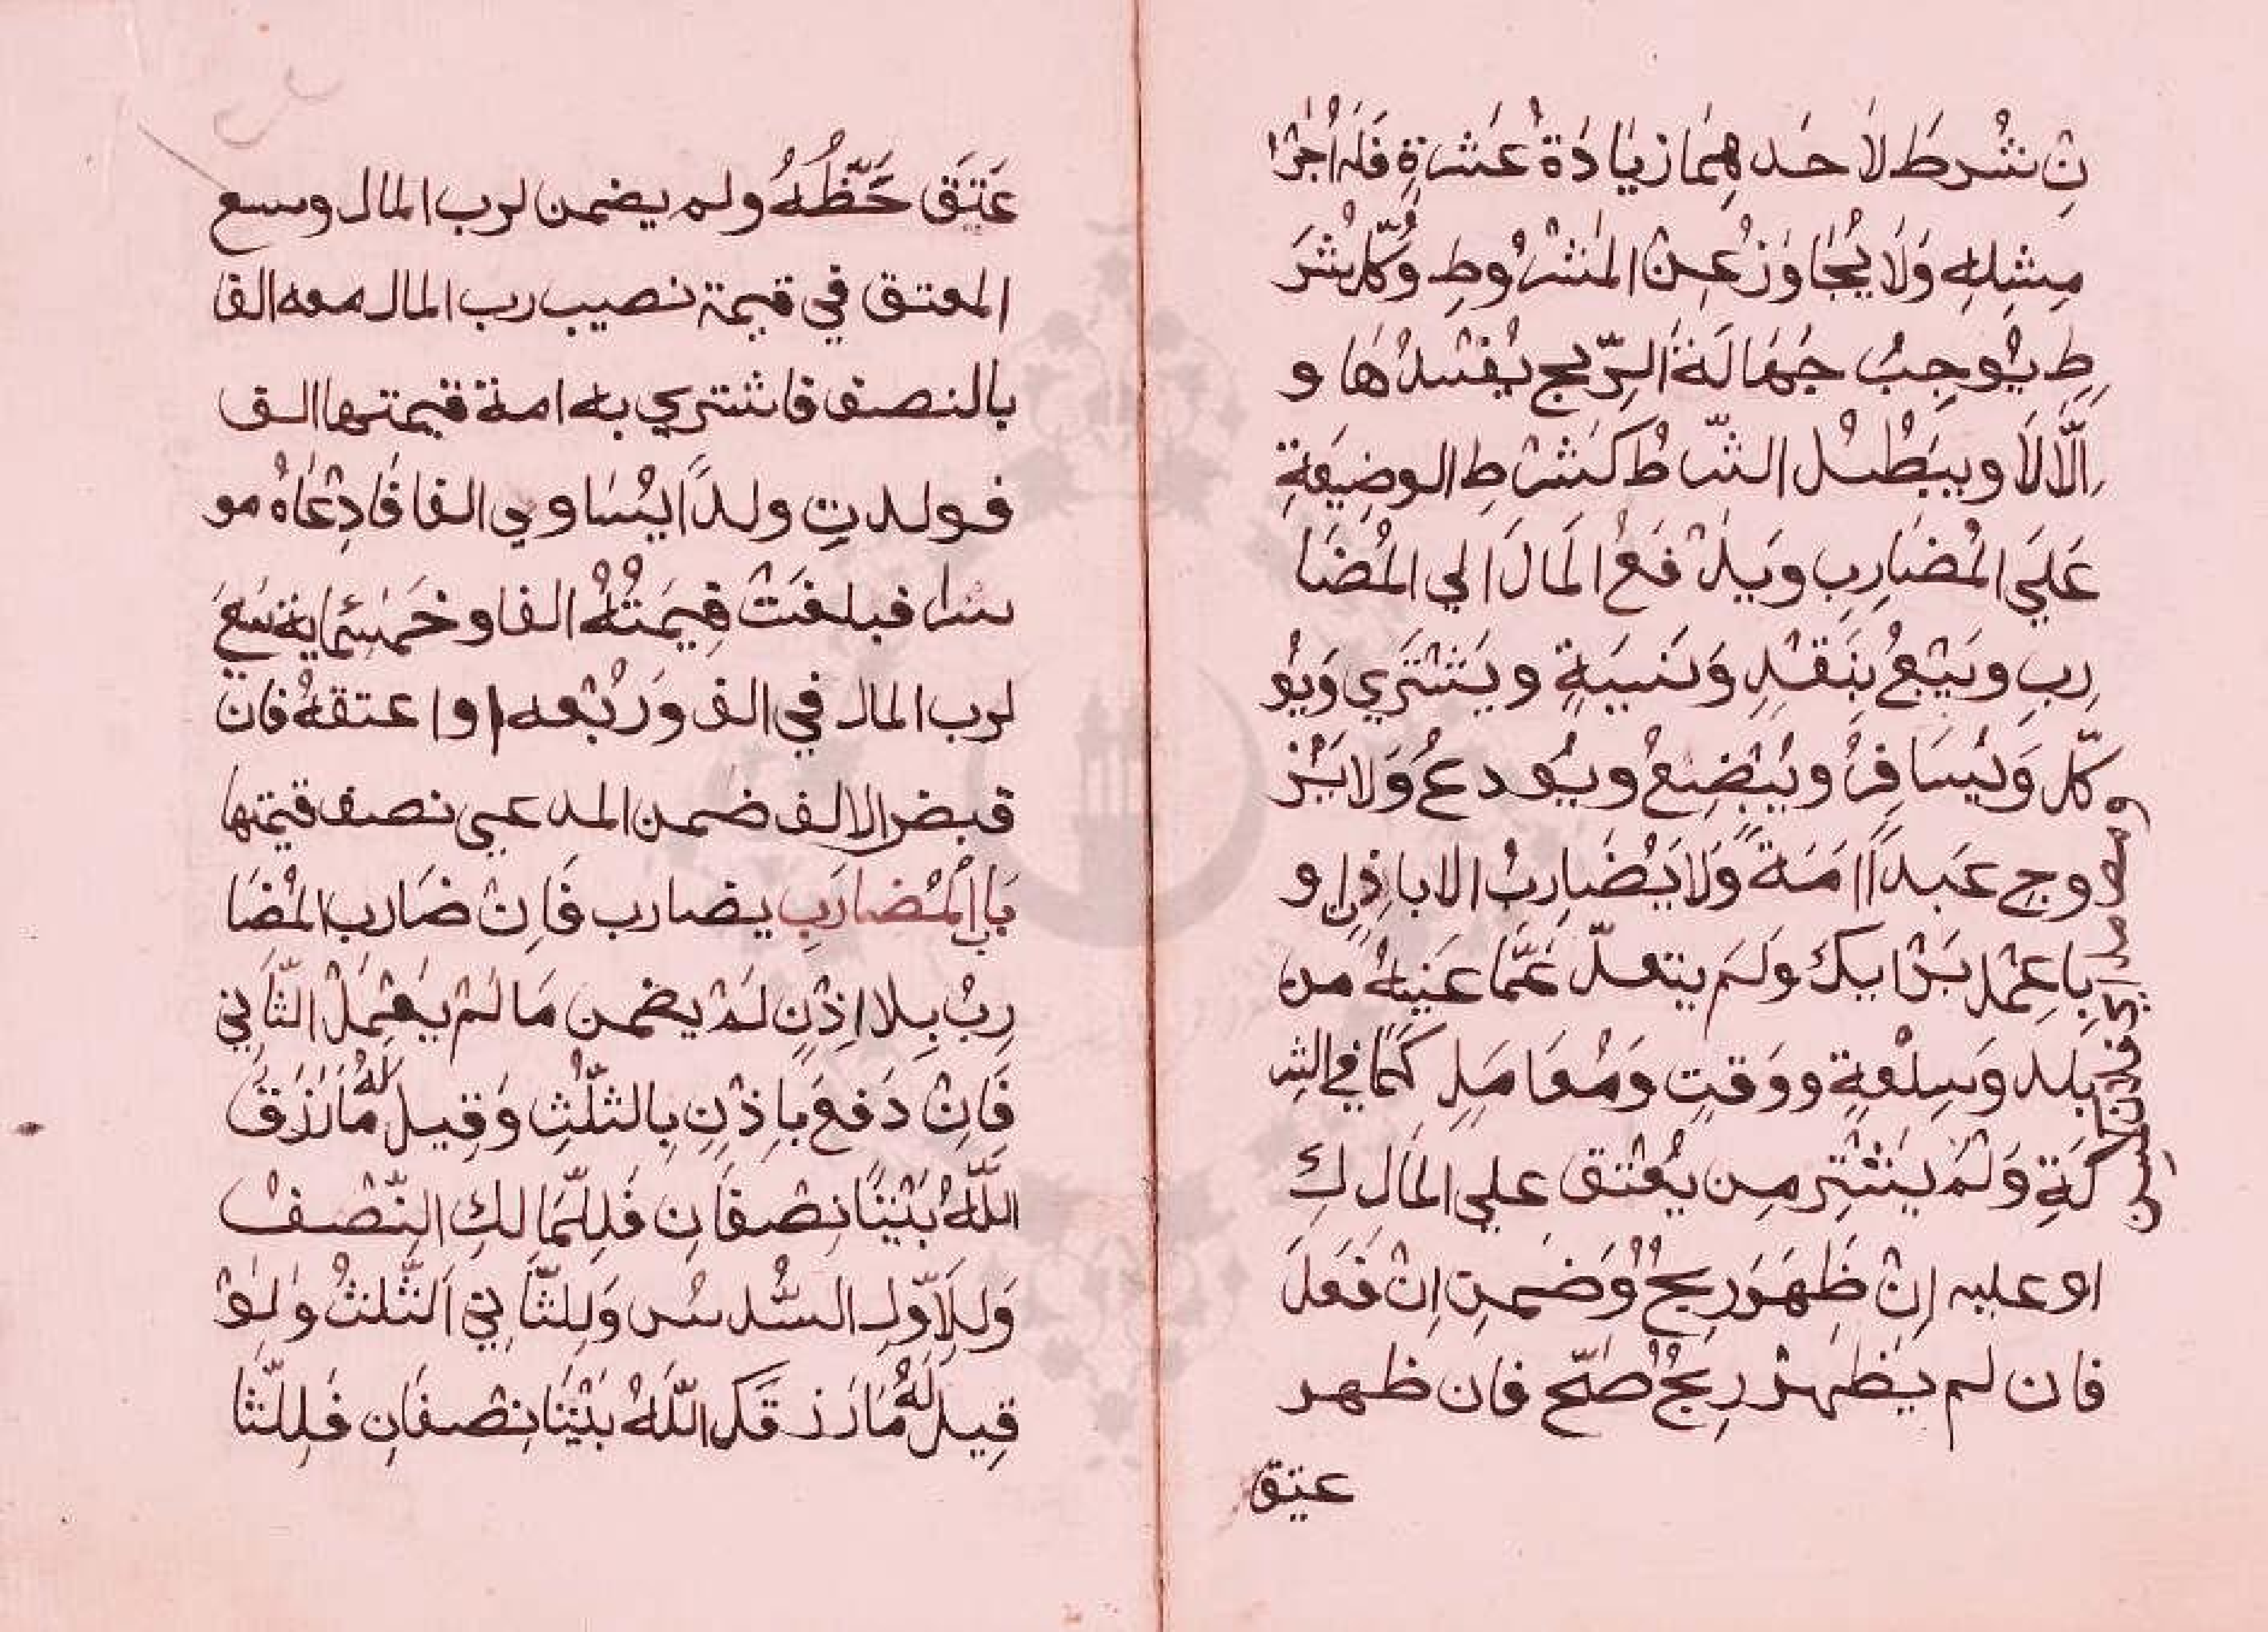 نِ شُرطَ لاَحَد هِمَا زيَادَةُ عَشرَةِ فَلَهُ اَجْرُ
مِثلِهِ وَلاَ يُجَاوَزُ عِنْ المَشْرُوطِ وَكُلّ شَرَ
طِ يُوجِبُ جَهَالَةَ الرِّبحِ يُفْسدُهَا و
اِلَّا لاَ ويبَطْلُ الشّرطُ كَشَرْطِ الوضِيَعَةِ
عَلَي المُضَارِبِ ويدْفَعُ المَالَ الي المُضَا
رِبِ وَيَبْعُ بِنَقْدٍ وَنَسيَةٍ ويَشْتَرِي وَيُو
كّل وَيُسَافِرُ ويُبْضِعُ ويُودعُ وَلاَ يُزْ
وج عَبداً اَمَةً وَلاَ يَضَاربُ الا باذِنِ او
بِاعِمْل بَرْايكَ وَلَم يتعدّ عَمّا عَينهُ من
بلد وَسِلْعَةٍ ووَقتٍ ومُعَامَلٍ كَمَا في الشر
كَةِ وَلَمْ يَشْتر مِن يُعْتق علي المَال كِ
او عليه اِنْ ظَهَرَ رِبحُ وَضَمنِ اِنْ فَعَلَ
فان لم يظهرْ رِبحُ صَحّ فان ظهر
عتق
عَتَقَ حَظُّهُ ولم يضمن لرب المال وسع
المعتق في قيمة نصيب رب المال معه الفا
بالنصف فاشتري به امة قيمتها الف
فولدت ولدًا يُسَاوي الفا فَادِعَاهُ مو
سرا فبلغَتْ قِيمَتُهُ الفا وخَمسُمايةٍ سَعَ
لرب المال في الف وَرُبُعه او اعتقهُ فان
قبض الالف ضمن المدعي نصف قيمتها
بَابُ الْمُضَارَبِ يضارب فَاِنْ ضَارب المُضَا
رِبُ بِلا اِذْنٍ لَمْ يضمن مَا لَمْ يَعْمَلْ الثَّانِي
فَانِ دَفعَ بَاِذْنٍ بِالثّلُثِ وَقِيلَ لَهُ مَا رَزَقَ
اللّهُ بَيْنَنَا نِصْفَانِ فَلِلْمَالكِ النِّصْفُ
وَلِلَاوّلِ السُّدسُ وَلِلثّانِي الثّلثُ وَلَوْ
قِيلَ لَهُ مَارَزقَكَ اللّهُ بَيْنَنَا نِصْفَانِ فَلِلثَّا